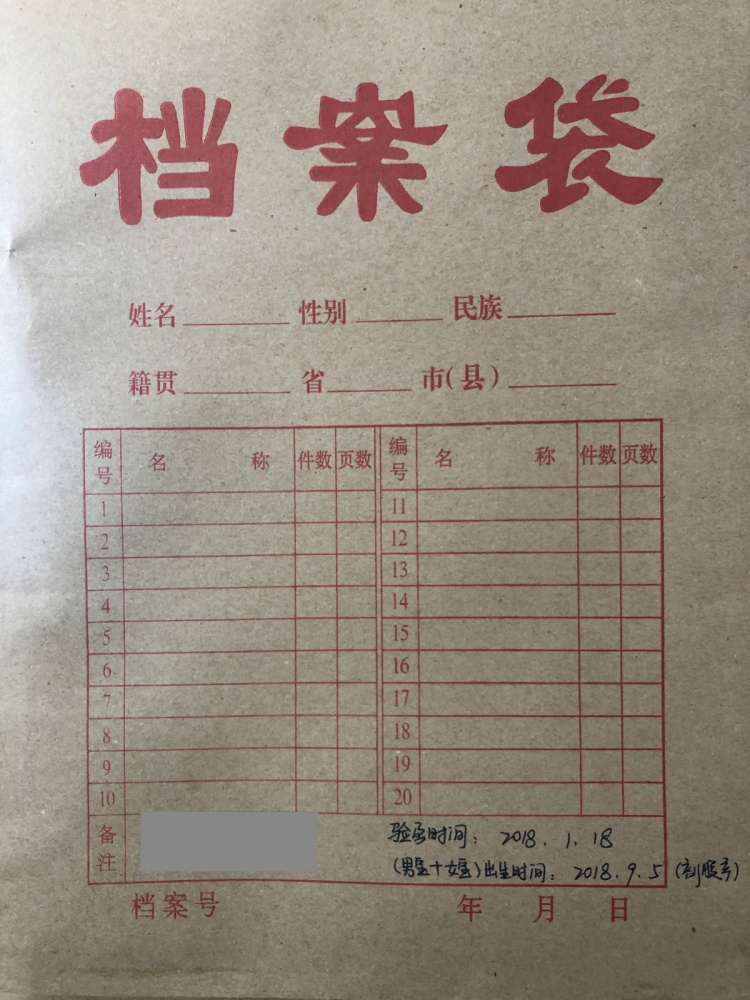 档案袋
姓名 性别 民族
籍贯 省 市(县)
编号 名称 件数 页数 编号 名称 件数 页数
1 11
2 12
3 13
4 14
5 15
6 16
7 17
8 18
9 19
10 20
备注
验孕时间：2018.1.18
(男宝+女宝)出生时间：2018.9.5 (剖腹产)
档案号 年 月 日